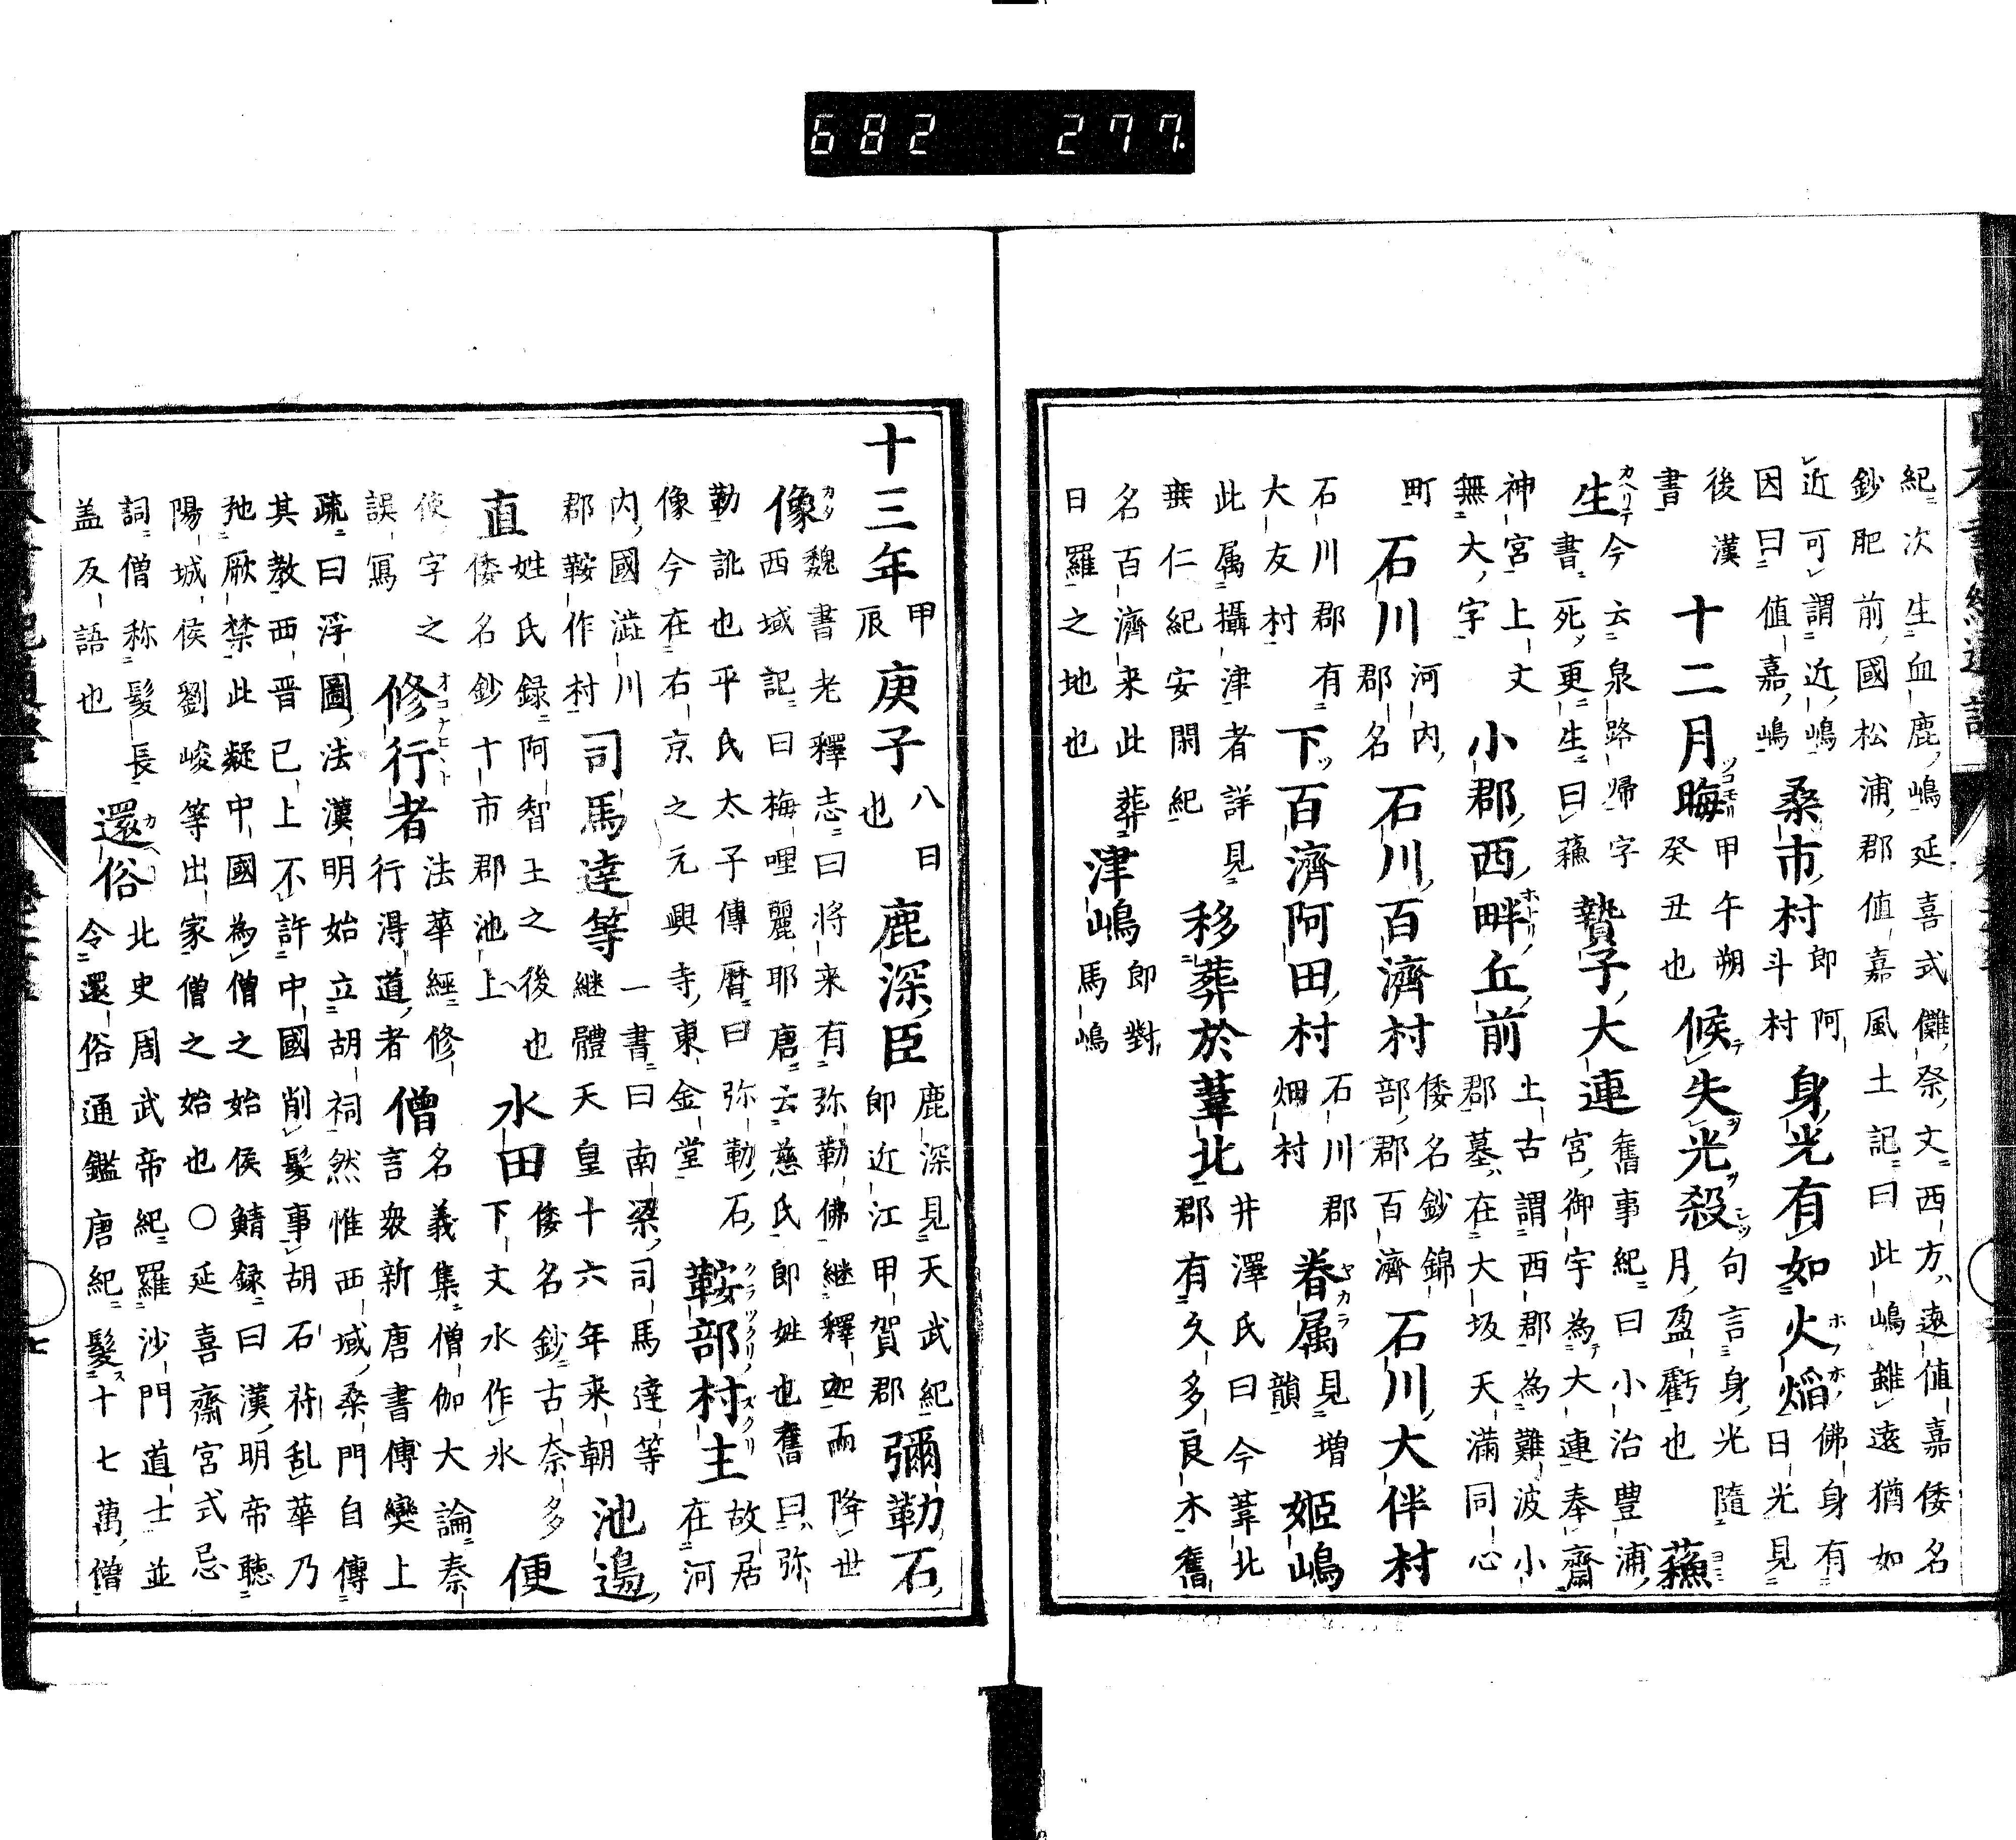 紀次生血鹿嶋延喜式儺祭文西方遠値嘉倭名
鈔肥前國松浦郡値嘉風土記曰此嶋雖遠猶如
近可謂近嶋因曰値嘉嶋 桑市村 即阿斗村 身光有如火焔 佛身有日光見
後漢書 十二月晦 甲午朔癸丑也 候失光殺 句言身光隨月盈虧也 蘓
生 今云泉路歸字書死更生曰蘓 贄子大連 舊事紀曰小治豊浦宮御宇為大連奉齋
神宮上文無大字 小郡西畔丘前 土古謂西郡為難波小郡墓在大坂天滿同心
町 石川 河内郡名 石川百濟村 倭名鈔錦部郡百濟 石川大伴村
石川郡有大友村 下百濟阿田村 石川郡畑村 眷属 見増韻 姫嶋
此属攝津者詳見垂仁紀安閑紀 移葬於葦北 井澤氏曰今葦北郡有久多良木舊
名百濟来此葬日羅之地也 津嶋 即對馬嶋
十三年 甲辰 庚子 八日也 鹿深臣 鹿深見天武紀即近江甲賀郡 彌勒石
像 魏書老釋志曰将来有弥勒佛継釋迦而降世西域記曰梅哩麗耶唐云慈氏即姓也舊曰弥
勒訛也平氏太子傳暦曰弥勒石像今在右京之元興寺東金堂 鞍部村主 故居在河
内國澁川郡鞍作村 司馬達等 一書曰南梁司馬達等継體天皇十六年来朝 池邊
直 姓氏録阿智王之後也倭名鈔十市郡池上 水田 倭名鈔古奈多下文水作氷 便
使字之誤寫 修行者 法華經修行得道者 僧 名義集僧伽大論秦言衆新唐書傳奕上
疏曰浮圖法漢明始立胡祠然惟西域桑門自傳
其教西晋已上不許中國削髮事胡石苻乱華乃
弛厥禁此疑中國為僧之始侯鯖録曰漢明帝聽
陽城侯劉峻等出家僧之始也〇延喜齋宮式忌
詞僧称髮長盖反語也 還俗 北史周武帝紀羅沙門道士並令還俗通鑑唐紀髮十七萬僧
682 277